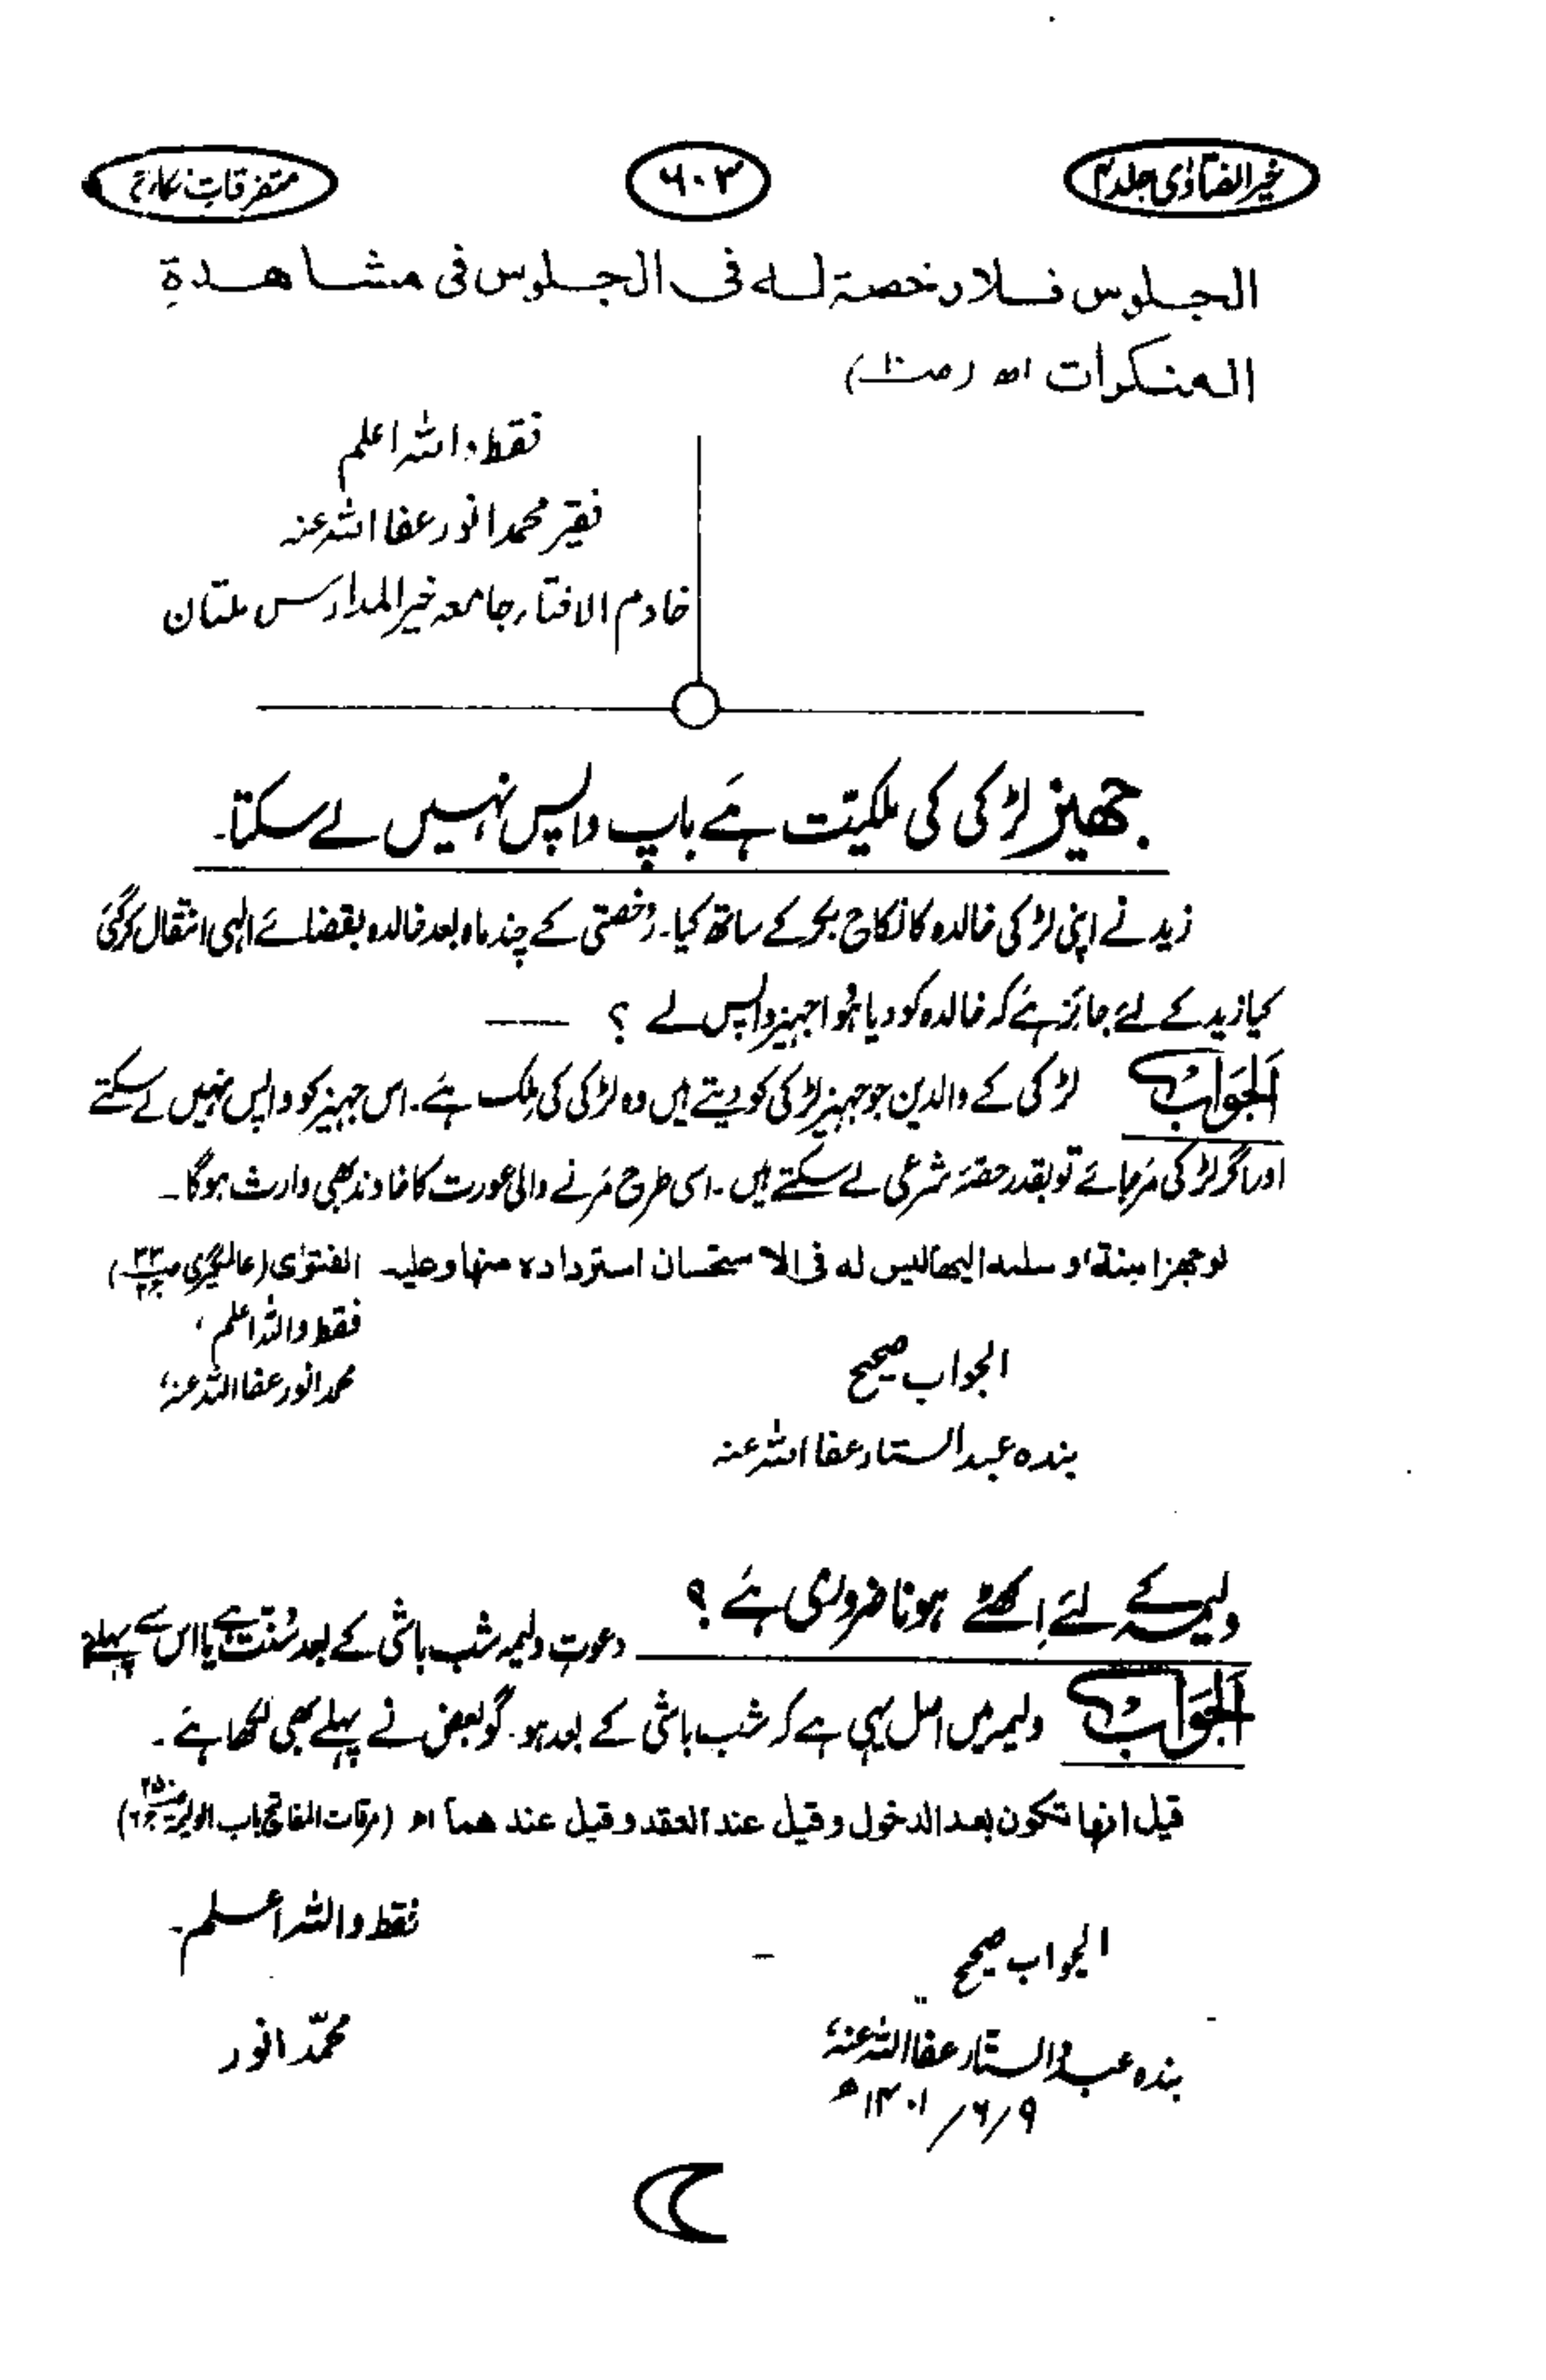 خیر الفتاوٰی جلد ۴
۶۰۳
متفرقاتِ نکاح
الجلوس فلا رخصة له فی الجلوس فی مشاهدةِ
المنکرات اھ (ص۱۰)
فقط واللہ اعلم
فقیر محمد انور عفا اللہ عنہ
خادم الافتاء جامعہ خیر المدارس ملتان
جھیز لڑکی کی ملکیّت ہے باپ واپس نہیں لے سکتا۔
زید نے اپنی لڑکی خالدہ کا نکاح بکر کے ساتھ کیا۔ رخصتی کے چند ماہ بعد خالدہ بقضائے الٰہی انتقال کر گئی
کیا زید کے لئے جائز ہے کہ خالدہ کو دیا ہوا جہیز واپس لے ؟
اَلجَوَابُ لڑکی کے والدین جو جہیز لڑکی کو دیتے ہیں وہ لڑکی کی مِلک ہے۔ اس جہیز کو واپس نہیں لے سکتے
اور اگر لڑکی مَر جائے تو بقدر حصّہ شرعی لے سکتے ہیں۔ اسی طرح مَرنے والی عورت کا خاوند بھی وارث ہو گا۔
لوجهز ابنته و سلمه الیها لیس له فی الاستحسان استرداده منها و علیه الفتوٰی (عالمگیری
فقط واللہ اعلم ،
الجواب صحیح
محمد انور عفا اللہ عنہ،
بندہ عبد الستار عفا اللہ عنہ
ولیمہ کے لئے اِکھٹے ہونا ضروری ہے ؟
دعوتِ ولیمہ شب باشی کے بعد سُنّت ہے یا اس سے پہلے
اَلجَوَابُ ولیمہ میں اصل یہی ہے کہ شب باشی کے بعد ہو۔ گو بعض نے پہلے بھی لکھا ہے۔
قیل انها تکون بعد الدخول و قیل عند العقد و قیل عند هما اھ (مرقات المفاتیح باب الولیمة
فقط واللہ اعلم۔
الجواب صحیح
محمّد انور
بندہ عبد الستار عفا اللہ عنہ،
۹/۶/۱۴۰۱ھ